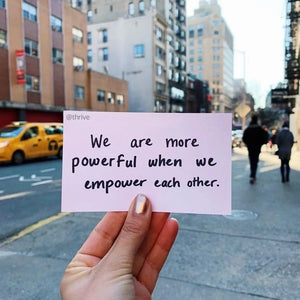 @thrive
We are more
powerful when we
empower each other.
@thrive